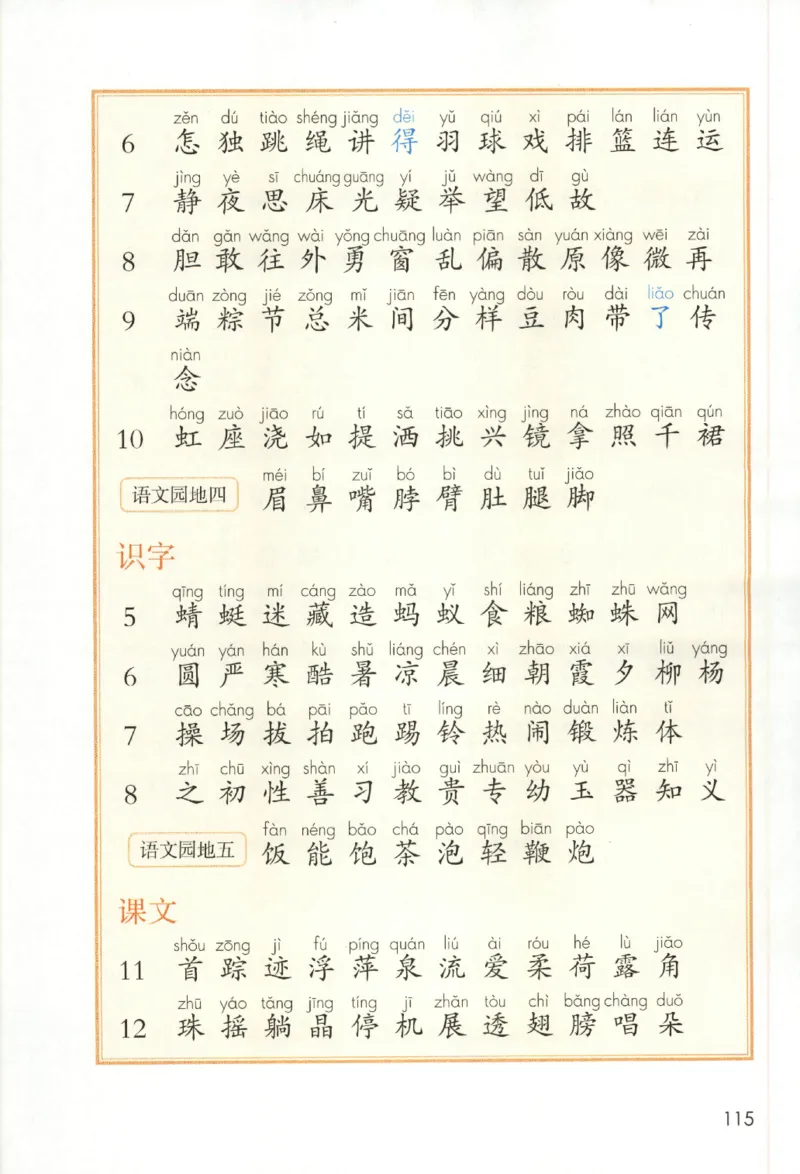 zěn dú tiào shéng jiǎng děi yǔ qiú xì pái lán lián yùn
6 怎 独 跳 绳 讲 得 羽 球 戏 排 篮 连 运
jìng yè sī chuáng guāng yí jǔ wàng dī gù
7 静 夜 思 床 光 疑 举 望 低 故
dǎn gǎn wǎng wài yǒng chuāng luàn piān sàn yuán xiàng wēi zài
8 胆 敢 往 外 勇 窗 乱 偏 散 原 像 微 再
duān zòng jié zǒng mǐ jiān fēn yàng dòu ròu dài liǎo chuán
9 端 粽 节 总 米 间 分 样 豆 肉 带 了 传
niàn
念
hóng zuò jiāo rú tí sǎ tiāo xìng jìng ná zhào qiān qún
10 虹 座 浇 如 提 洒 挑 兴 镜 拿 照 千 裙
méi bí zuǐ bó bì dù tuǐ jiǎo
语文园地四 眉 鼻 嘴 脖 臂 肚 腿 脚
识字
qīng tíng mí cáng zào mǎ yǐ shí liáng zhī zhū wǎng
5 蜻 蜓 迷 藏 造 蚂 蚁 食 粮 蜘 蛛 网
yuán yán hán kù shǔ liáng chén xì zhāo xiá xī liǔ yáng
6 圆 严 寒 酷 暑 凉 晨 细 朝 霞 夕 柳 杨
cāo chǎng bá pāi pǎo tī líng rè nào duàn liàn tǐ
7 操 场 拔 拍 跑 踢 铃 热 闹 锻 炼 体
zhī chū xìng shàn xí jiào guì zhuān yòu yù qì zhī yì
8 之 初 性 善 习 教 贵 专 幼 玉 器 知 义
fàn néng bǎo chá pào qīng biān pào
语文园地五 饭 能 饱 茶 泡 轻 鞭 炮
课文
shǒu zōng jì fú píng quán liú ài róu hé lù jiǎo
11 首 踪 迹 浮 萍 泉 流 爱 柔 荷 露 角
zhū yáo tǎng jīng tíng jī zhǎn tòu chì bǎng chàng duǒ
12 珠 摇 躺 晶 停 机 展 透 翅 膀 唱 朵
115